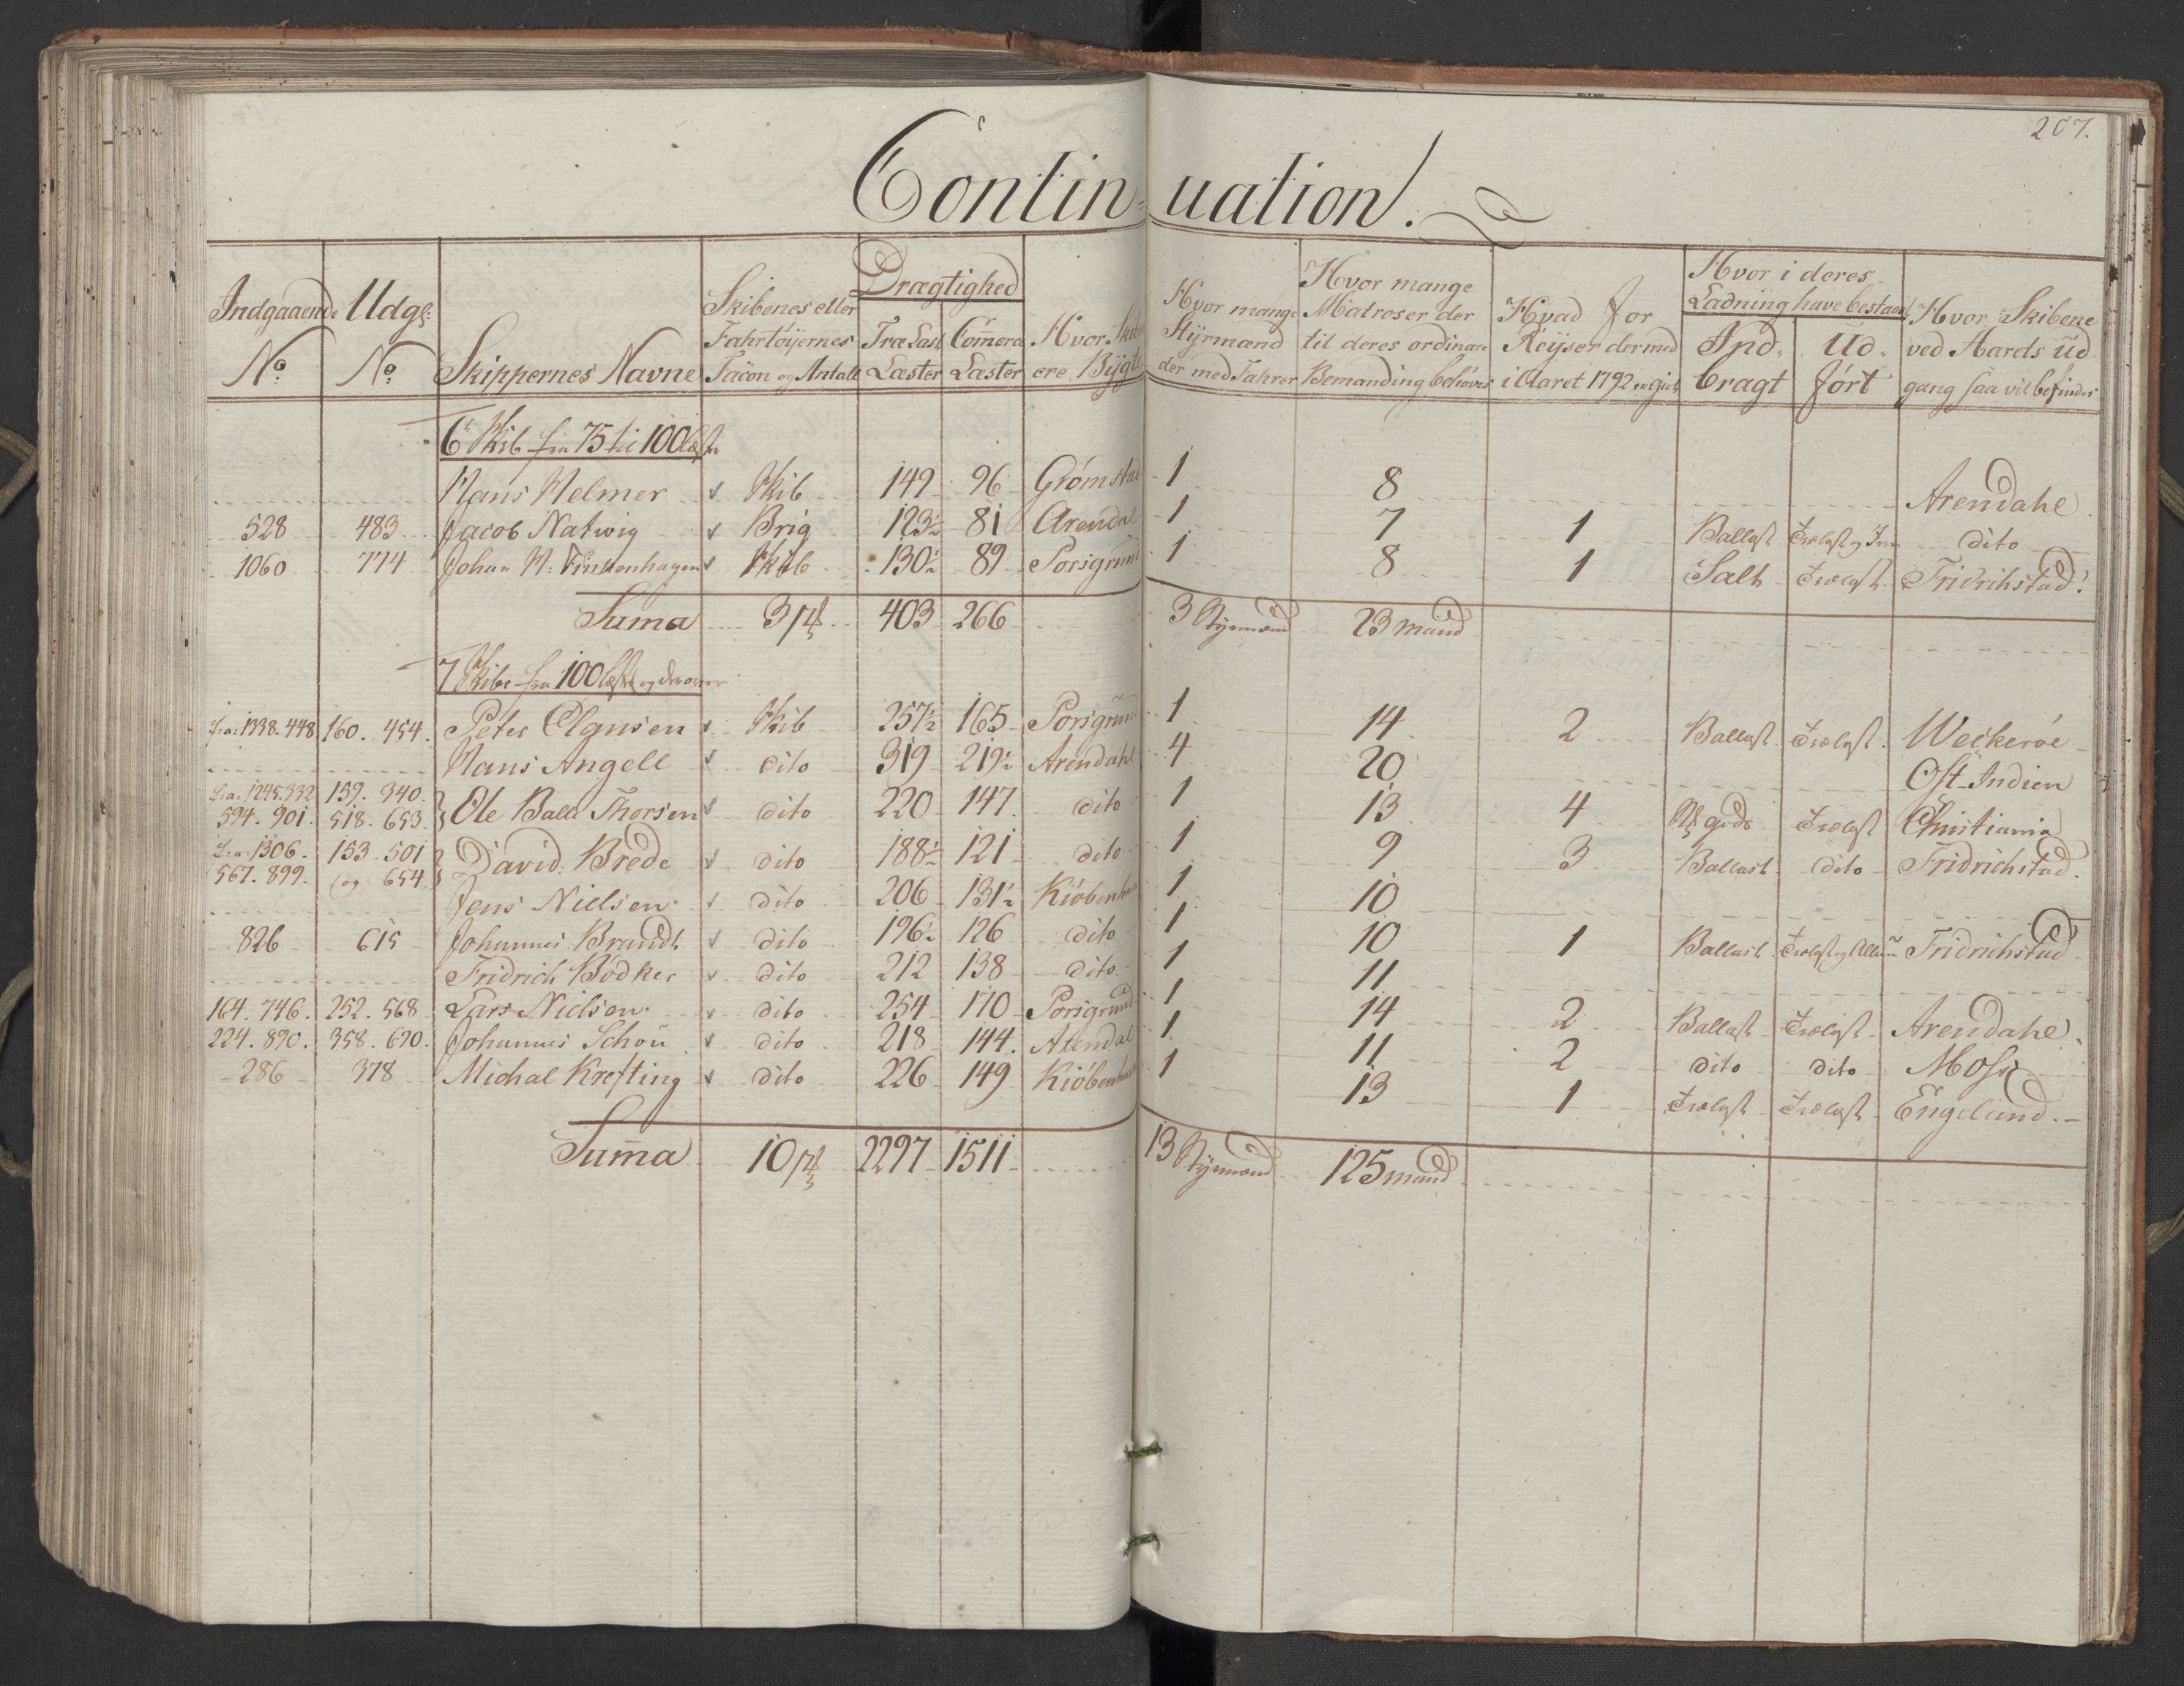 207.
Continuation.
Indgaaende No Udgl: No Skippernes Navne Skibenes eller Fahrtöyernes Facon og Antall Drægtighed Træ Last Læster Com̄erce Læster Hvor Skibene ere Bÿgte Hvor mange Stÿrmænd der med Fahrer Hvor mange Matroser der til deres ordinaire Bemanding behöves Hvad for Reÿser der med i Aaret 1792 er giort Hvor i deres Ladning have bestaaet Ind- bragt Ud- fört Hvor Skibene ved Aarets Ud- gang saa vil befindes
6 Skib fra 75 til 100 læster
Hans Helmer Skib 149 96 Grömstad 1 8 Arendahl
528 483 Jacob Natwig Brig 123½ 81 Arendal 1 7 1 Ballast Trælast og dito
1060 774 Johan H: Finckenhagen Skib 130½ 89 Porsgrund 1 8 1 Salt Trælast Fridrichstad
Suma 3 403 266 3 Stÿrmænd 23 mand
7 Skibe fra 100 læster og derover
Fra: 1338. 448 160. 454. Peter Clausen Skib 257½ 165 Porsgrund 1 14 2 Ballast Trælast Weckeröe
Hans Angell dito 319 219½ Arendahl 4 20 Ost-Indien
Fra: 1245. 332 159. 340.
594. 901. 518. 653. Ole Balle Thorsen dito 220 147. dito 1 13. 4 gods Trælast Christiania
Fra: 1306. 153. 501
567. 899. og 654. David Brede dito 188½ 121 dito 1 9 3 Ballast dito Fridrichstad.
Jens Nielsen dito 206 131½ Kiöbenhavn 1 10
826 615 Johannes Brandt dito 196½ 126 dito 1 10 1 Ballast Trælast og Allun Fridrichstad
Fridrich Bödker dito 212 138 dito 1 11
164. 746. 252. 568. Lars Nielsen dito 254 170 Porsgrund 1 14 2 Ballast Trælast Arendahl
224. 890. 358. 690. Johannes Schou dito 218 144. Arendal 1 11 2 dito dito Moss
286 378 Michal Krefting dito 226 149 Kiöbenhavn 1 13 1 Trælast Trælast Engeland.
Sum̄a 10 2297 1511 13 Stÿrmænd 125 mand